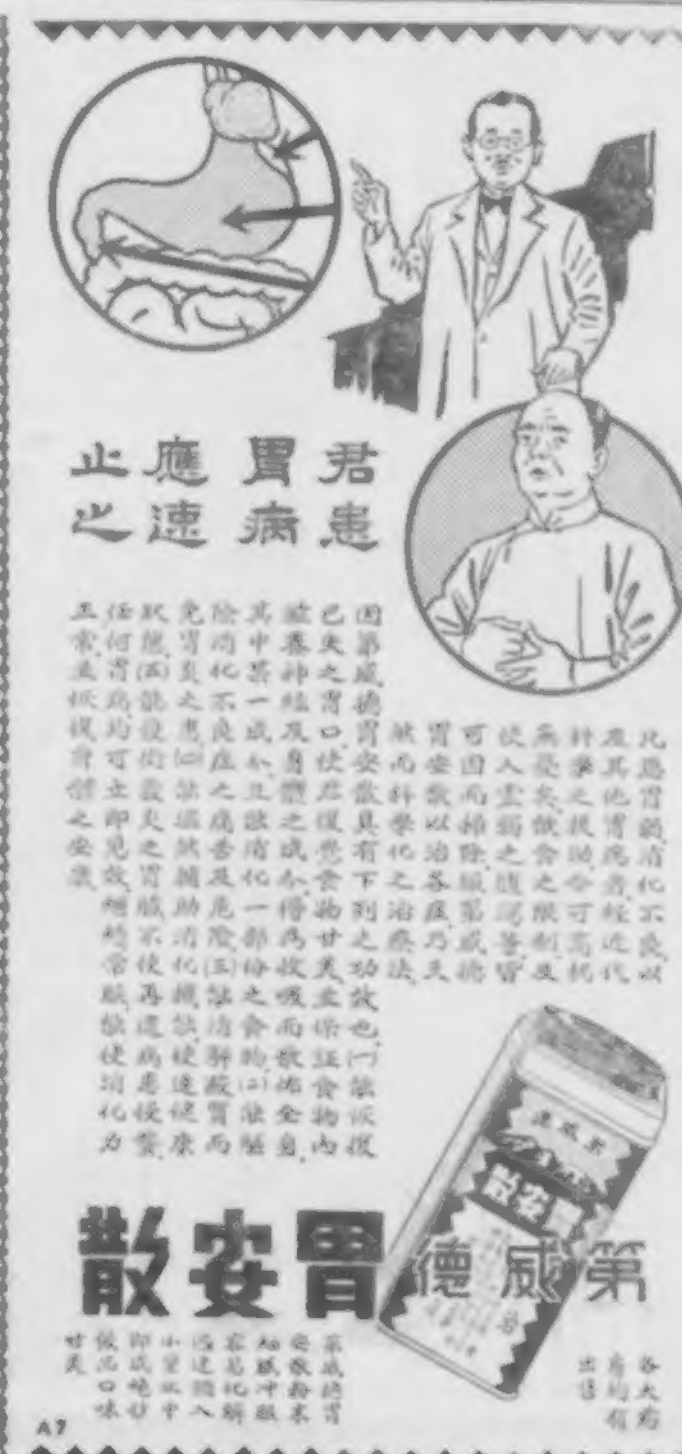 君患
胃病
應速
止之
凡患胃弱消化不良以
及其他胃病者經近代
科學之援助今可高枕
無憂矣飲食之限制及
使人虛弱之腹瀉等皆
可因而掃除緣第威德
胃安散以治各症乃天
然而科學化之治療法
因第威德胃安散具有下列之功效也(一)能恢復
已失之胃口使君復覺食物甘美並保証食物內
滋養神經及身體之成分得為收吸而散佈全身
其中某一成分且能消化一部份之食物(二)能驅
除消化不良症之痛苦及危險(三)能消解酸質而
免胃炎之患(四)能溫然補助消化機能使達健康
狀態(五)能設衛發炎之胃臟不使再遭病患侵襲
任何胃病均可立即見效繼續常服能使消化力
正常並恢復身體之安康
第威德
胃安散
第威德胃
安散粉末
細膩沖服
容易化解
迅速調入
小量水中
即成絕妙
飲品口味
甘美
各大藥
房均有
出售
第威德
胃安散
A7